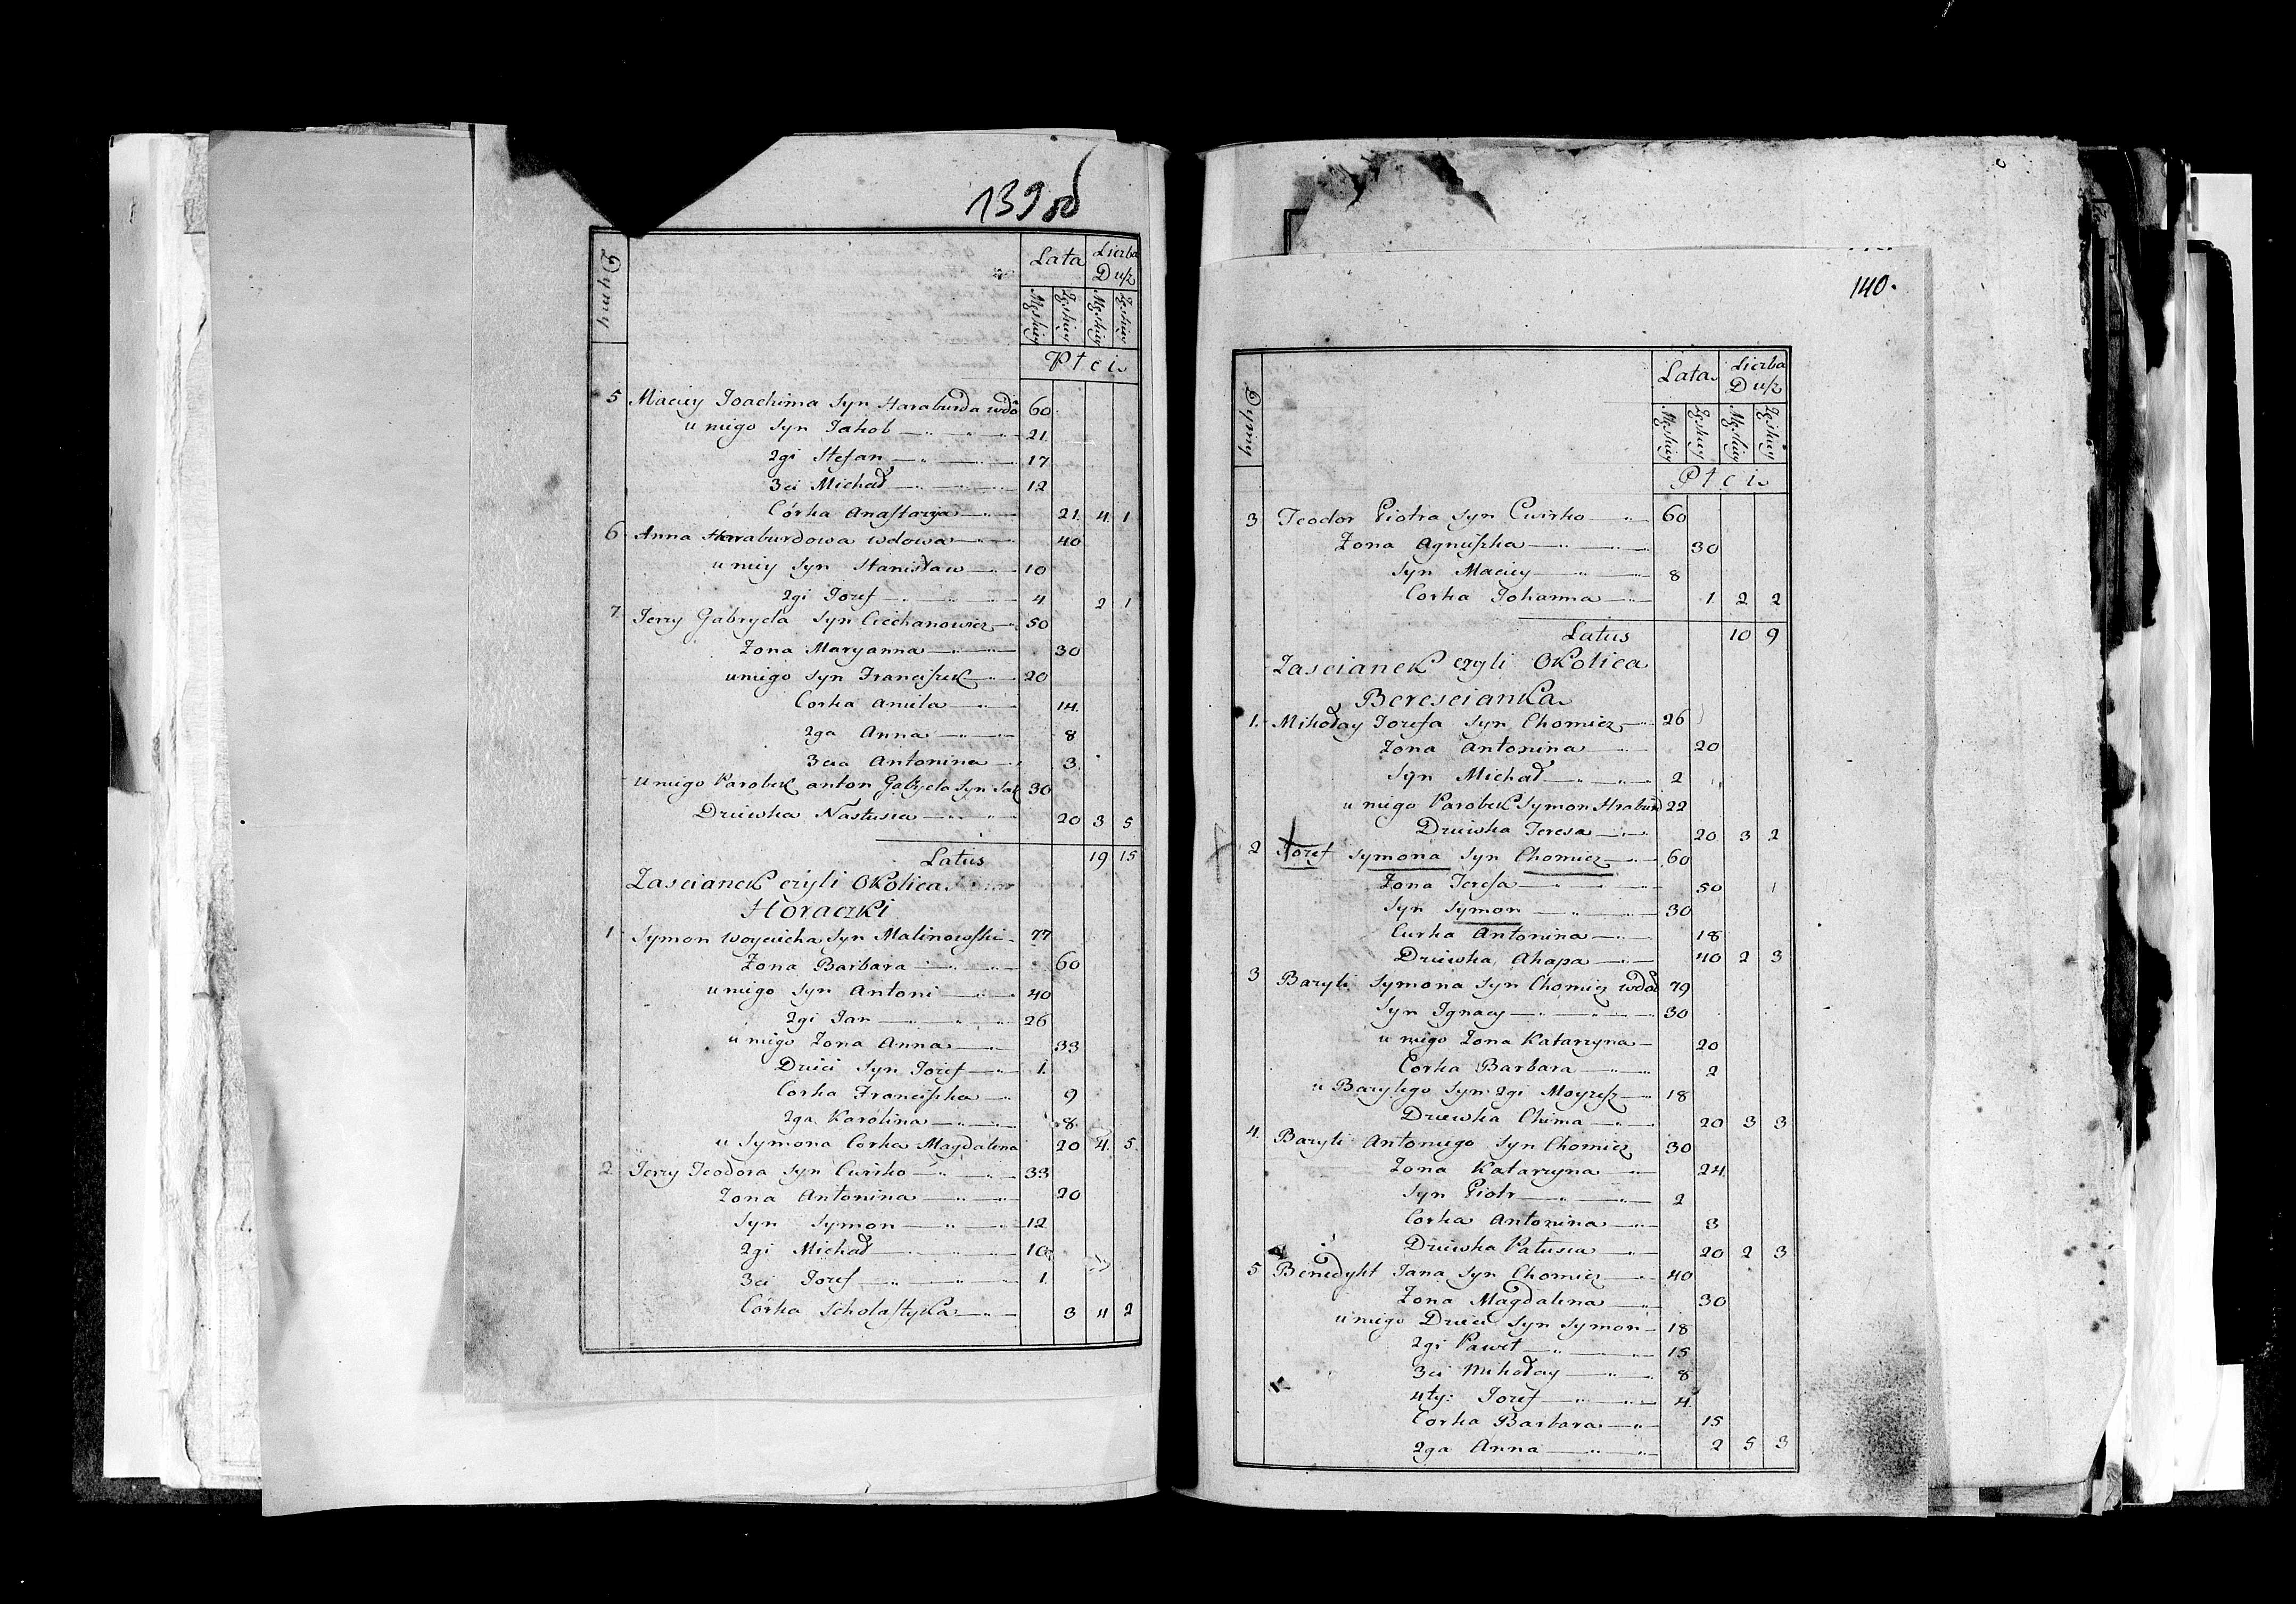 139 об
Dymy Lata Liczba Dusz
Męskiey Żeńskiey Męskiey Żeńskiey
Płci
5 Maciey Joachima Syn Haraburda wdo 60
u niego Syn Jakob 21
2gi Stefan 17
3ci Michał 12
Córka Anastazya 21 4 1
6 Anna Haraburdowa wdowa 40
u niey Syn Stanisław 10
2gi Jozef 4 2 1
7 Jerzy Gabryela Syn Ciechanowicz 50
Zona Maryanna 30
u niego Syn Franciszek 20
Corka Aniela 14
2ga Anna 8
3cia Antonina 3
u niego Parobek Anton Gabryela Syn 30
Dziewka Nastusia 20 3 5
Latus 19 15
Zascianek czyli Okolica
Horaczki
1 Symon Woyciecha Syn Malinowski 77
Zona Barbara 60
u niego Syn Antoni 40
2gi Jan 26
u niego Zona Anna 33
Dzieci Syn Jozef 1
Corka Franciszka 9
2ga Karolina 8
u Symona Corka Magdalena 20 4 5
2 Jerzy Teodora Syn Cwirko 33
Zona Antonina 20
Syn Symon 12
2gi Michał 10
3ci Jozef 1
Córka Scholastyka 3 4 2
140.
Dymy Lata Liczba Dusz
Męskiey Żeńskiey Męskiey Żeńskiey
Płci
3 Teodor Piotra Syn Cwirko 60
Zona Agniszka 30
Syn Maciey 8
Corka Johanna 1 2 2
Latus 10 9
Zascianek czyli Okolica
Berescianka
1. Mikołay Jozefa Syn Chomicz 26
Zona Antonina 20
Syn Michał 2
u niego Parobek Symon Hraburd 22
Dziewka Teresa 20 3 2
2 Jozef Symona Syn Chomicz 60
Zona Teresa 50
Syn Symon 30
Curka Antonina 18
Dziewka Ahapa 40 2 3
3 Bazyli Symona Syn Chomicz wdo 79
Syn Ignacy 30
u niego Zona Katarzyna 20
Corka Barbara 2
u Bazylego Syn 2gi Moyzesz 18
Dziewka Chima 20 3 3
4. Bazyli Antoniego Syn Chomicz 30
Zona Katarzyna 24
Syn Piotr 2
Corka Antonina 3
Dziewka Katusia 20 2 3
5 Benedykt Jana Syn Chomicz 40
Zona Magdalena 30
u niego Dzieci Syn Symon 18
2gi Paweł 15
3ci Mikołay 8
4ty: Jozef 4
Corka Barbara 15
2ga Anna 2 5 3